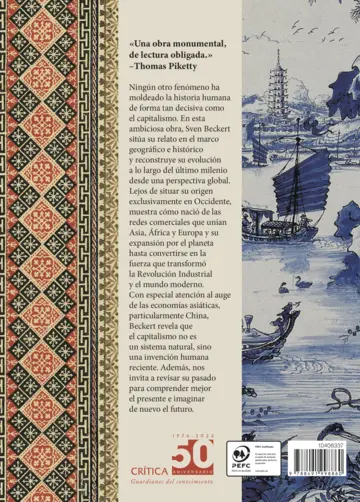 «Una obra monumental,
de lectura obligada.»
–Thomas Piketty
Ningún otro fenómeno ha
moldeado la historia humana
de forma tan decisiva como
el capitalismo. En esta
ambiciosa obra, Sven Beckert
sitúa su relato en el marco
geográfico e histórico
y reconstruye su evolución
a lo largo del último milenio
desde una perspectiva global.
Lejos de situar su origen
exclusivamente en Occidente,
muestra cómo nació de las
redes comerciales que unían
Asia, África y Europa y su
expansión por el planeta
hasta convertirse en la
fuerza que transformó
la Revolución Industrial
y el mundo moderno.
Con especial atención al auge
de las economías asiáticas,
particularmente China,
Beckert revela que
el capitalismo no es
un sistema natural, sino
una invención humana
reciente. Además, nos
invita a revisar su pasado
para comprender mejor
el presente e imaginar
de nuevo el futuro.
CRÍTICA
50
ANIVERSARIO
Guardianes del conocimiento
PEFC